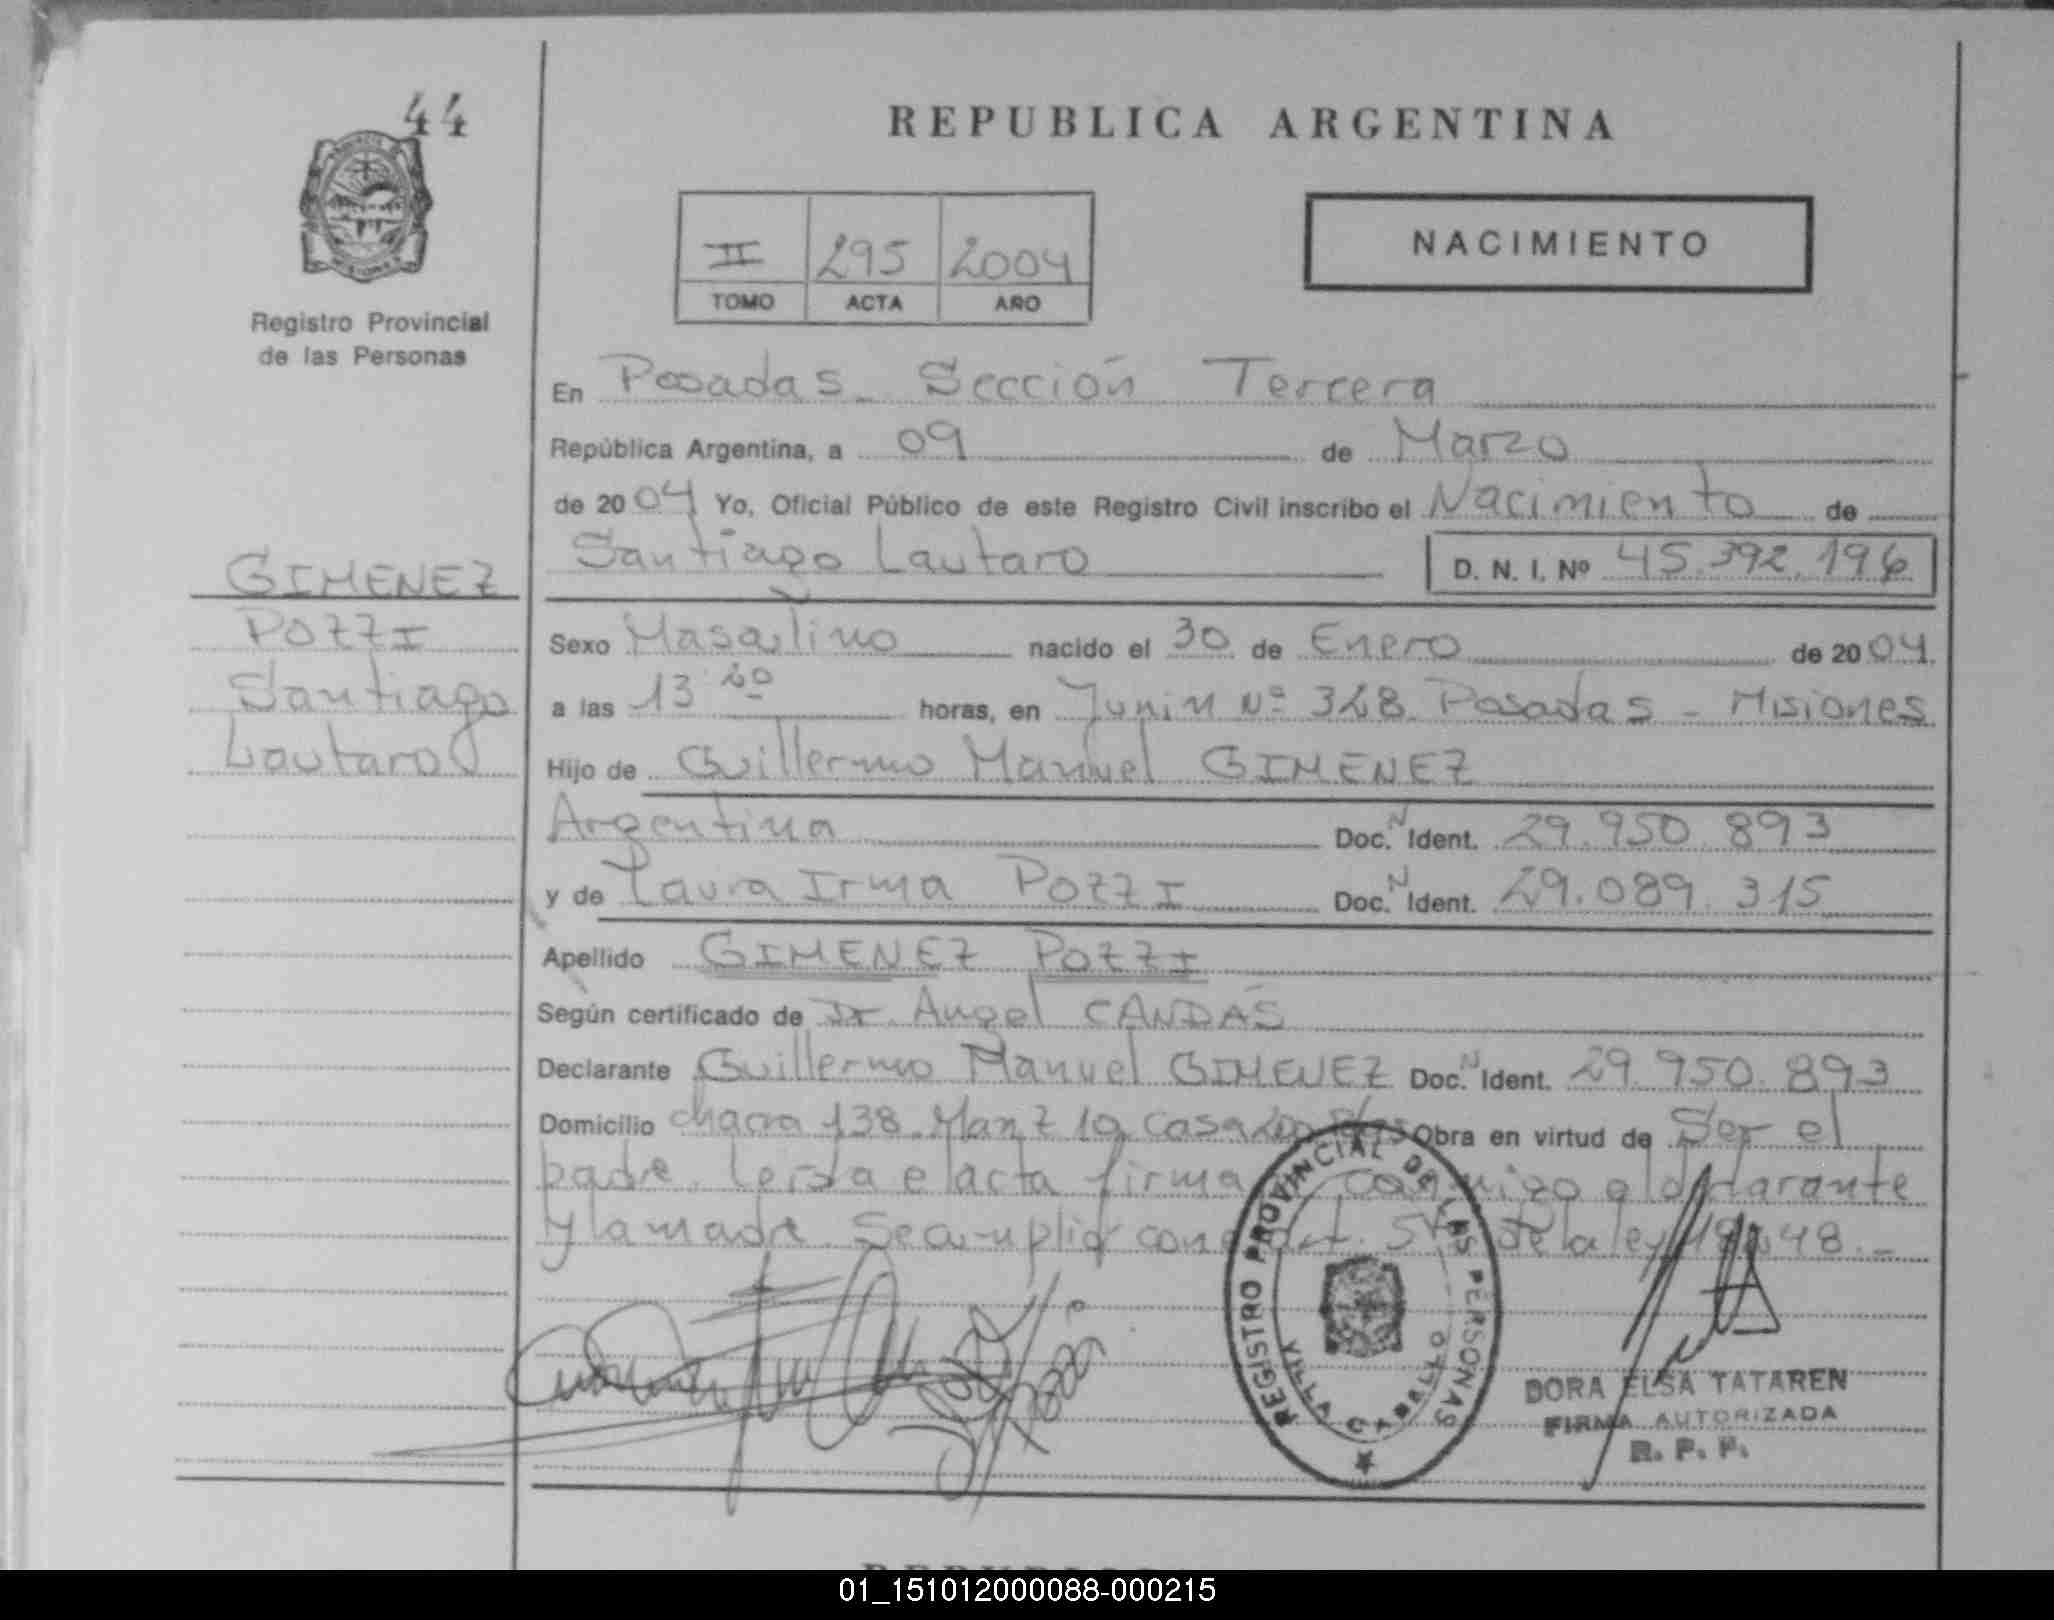 44
REPUBLICA ARGENTINA
II 295 2004
TOMO ACTA AÑO
NACIMIENTO
Registro Provincial
de las Personas
En Posadas - Sección Tercera
República Argentina, a 09 de Marzo
de 2004 Yo, Oficial Público de este Registro Civil inscribo el Nacimiento de
Santiago Lautaro D. N. I. Nº 45.392.196
GIMENEZ
POZZI
Santiago
Lautaro
Sexo Masculino nacido el 30 de Enero de 2004
a las 13 20 horas, en Junin Nº 328 Posadas - Misiones
Hijo de Guillermo Manuel GIMENEZ
Argentina Doc. N Ident. 29.950.893
y de Laura Irma POZZI Doc. N Ident. 29.089.315
Apellido GIMENEZ POZZI
Según certificado de Dr. Angel CANDAS
Declarante Guillermo Manuel GIMENEZ Doc. N Ident. 29.950.893
Domicilio chacra 138 Manz 19 casa Obra en virtud de Ser el
padre. Leída el acta firma conmigo el declarante
y la madre. Se cumplió con el art. de la ley
REGISTRO PROVINCIAL DE LAS PERSONAS
VILLA CABELLO
DORA ELSA TATAREN
FIRMA AUTORIZADA
R. P. P.
01_151012000088-000215